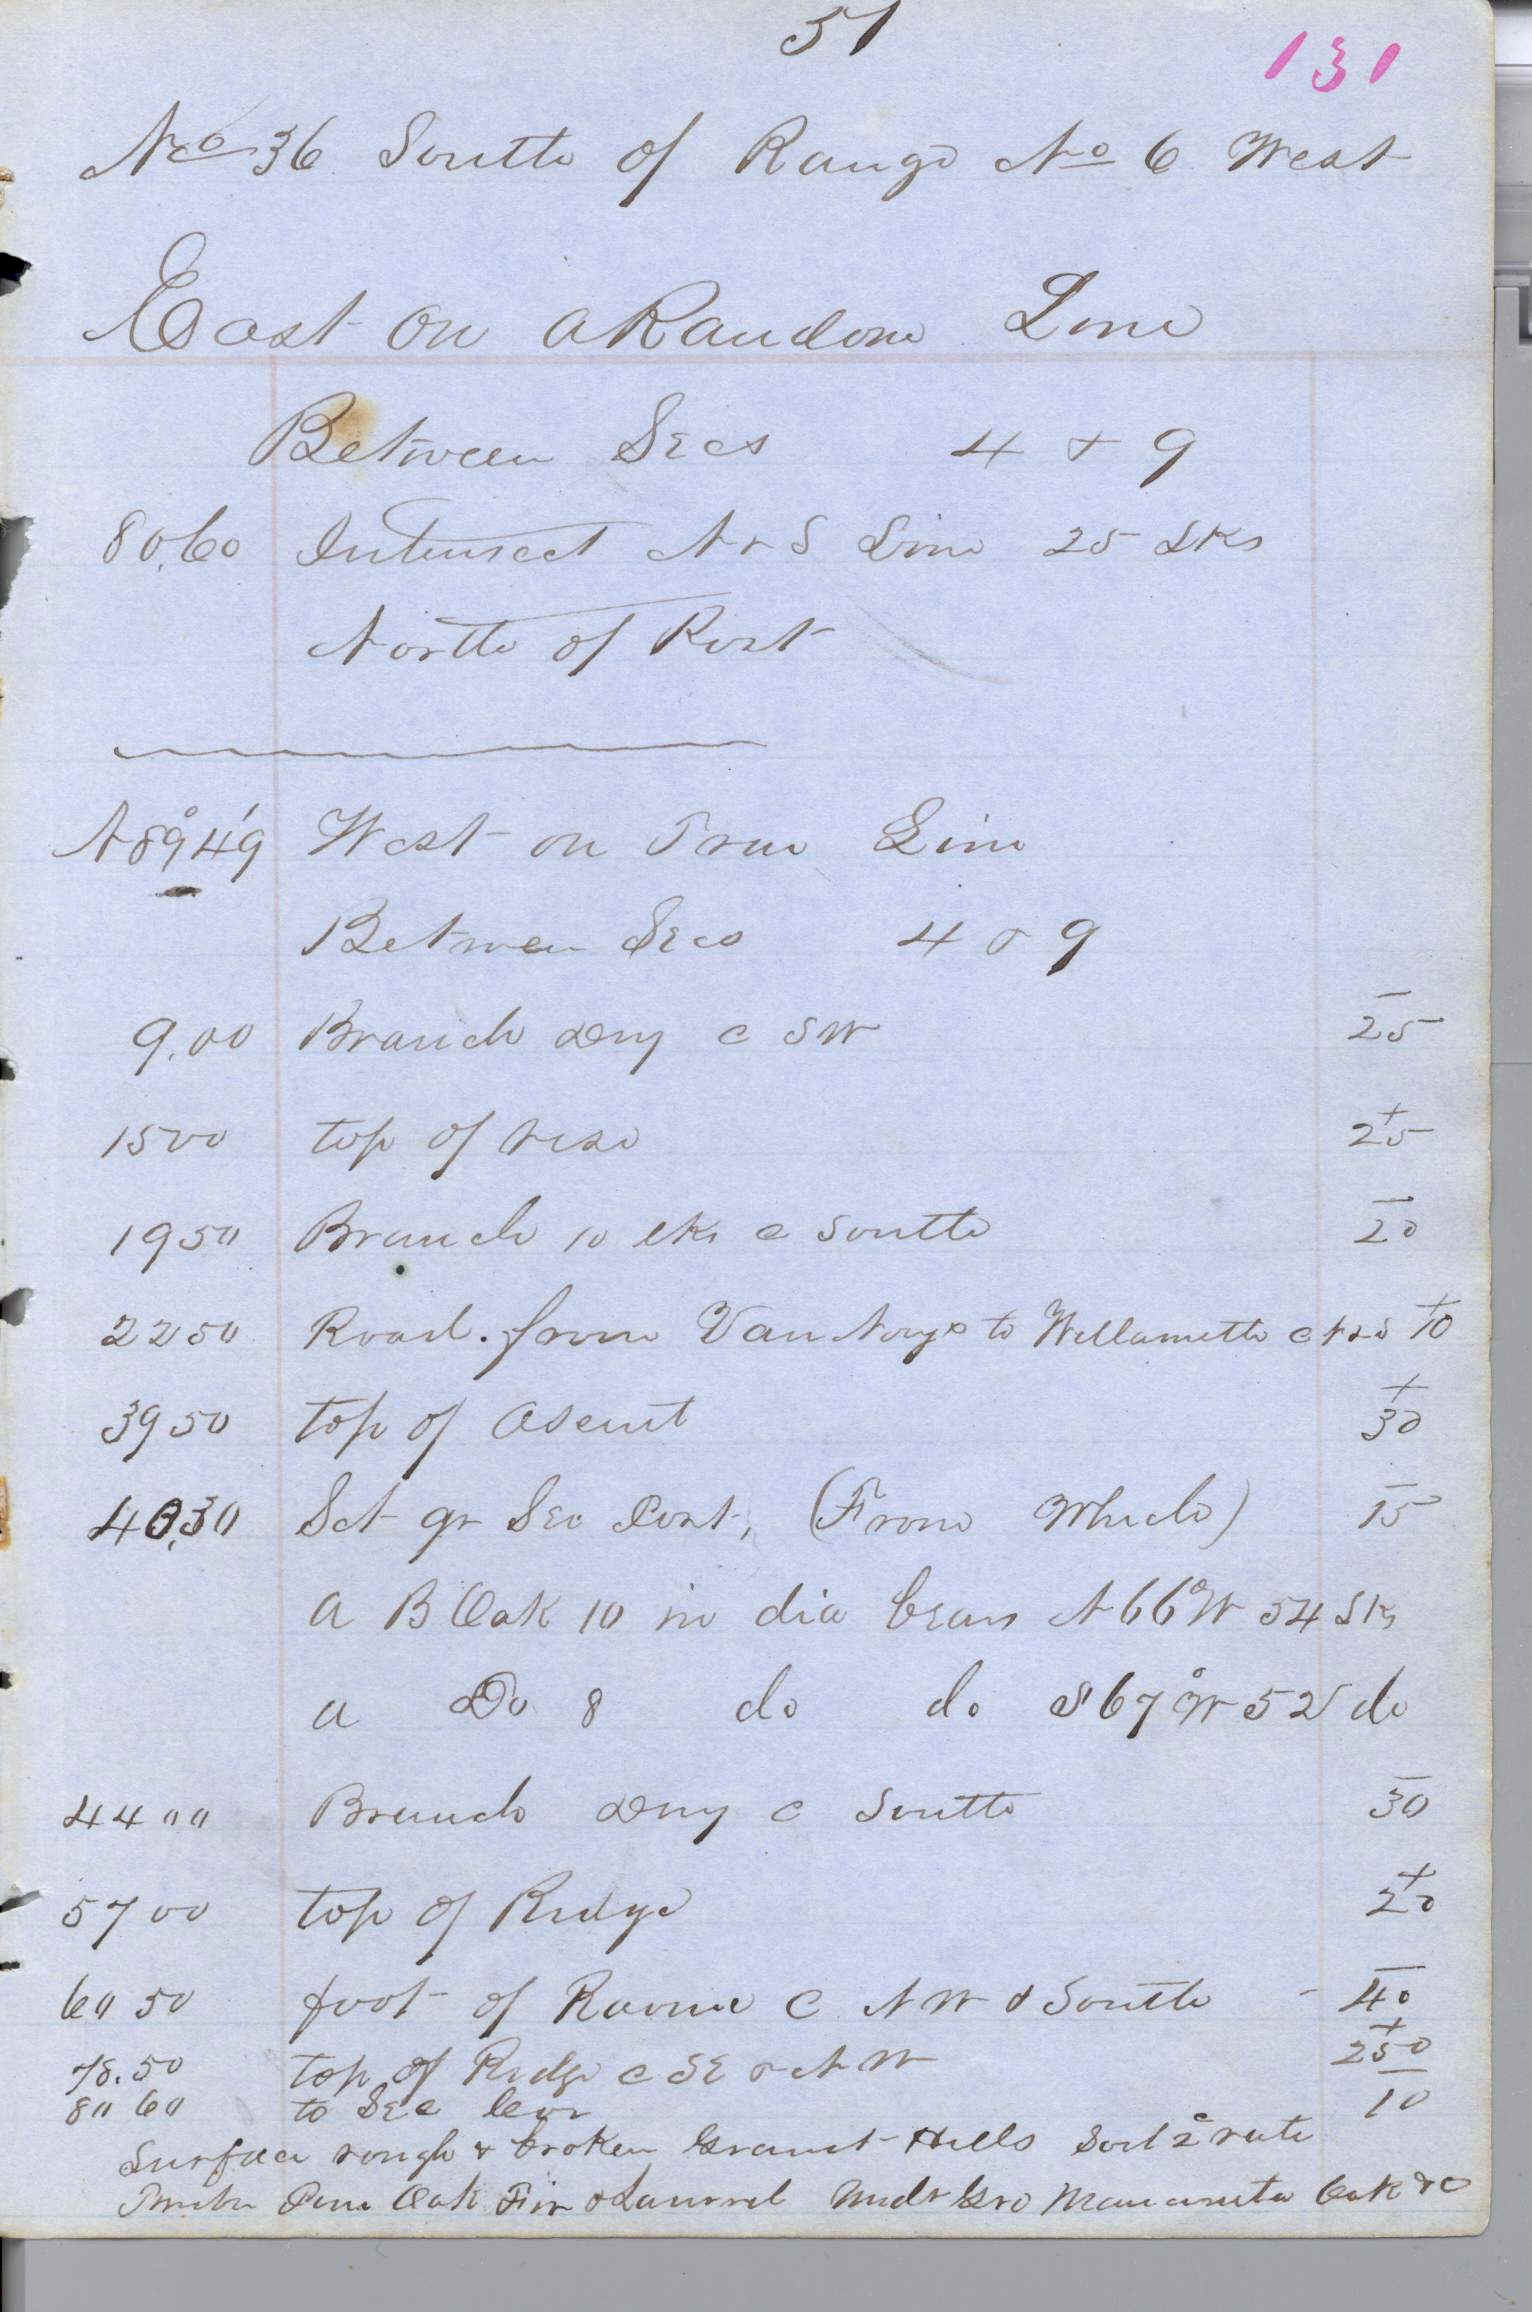 51
131
No 36 South of Range No 6 West
East on a Random Line
Between Secs 4 & 9
80.60 Intersect N & S Line 25 Lks
North of Post
N 89° 49' West on True Line
Between Secs 4 & 9
9.00 Branch Dry c SW – 25
1500 top of rise + 25
1950 Branch 10 lks c South – 20
2250 Road from Van Noys to Willamette c N & S + 10
39 50 top of Asent + 30
40.30 Set qr Sec Post, (From Which) – 15
a B Oak 10 in dia bears N 66° W 54 Lks
a Do 8 do do S 67° W 52 do
44 00 Branch Dry c South – 30
57 00 top of Ridge + 20
60 50 foot of Ravine c NW & South – 40
78.50 top of Ridge c SE & NW + 250
80 60 to Sec Cor – 10
Surface rough & broken Granit Hills Soil 2c rate
Timber Pine Oak Fir & Laurrel Undr Gro Manzanita Oak &c